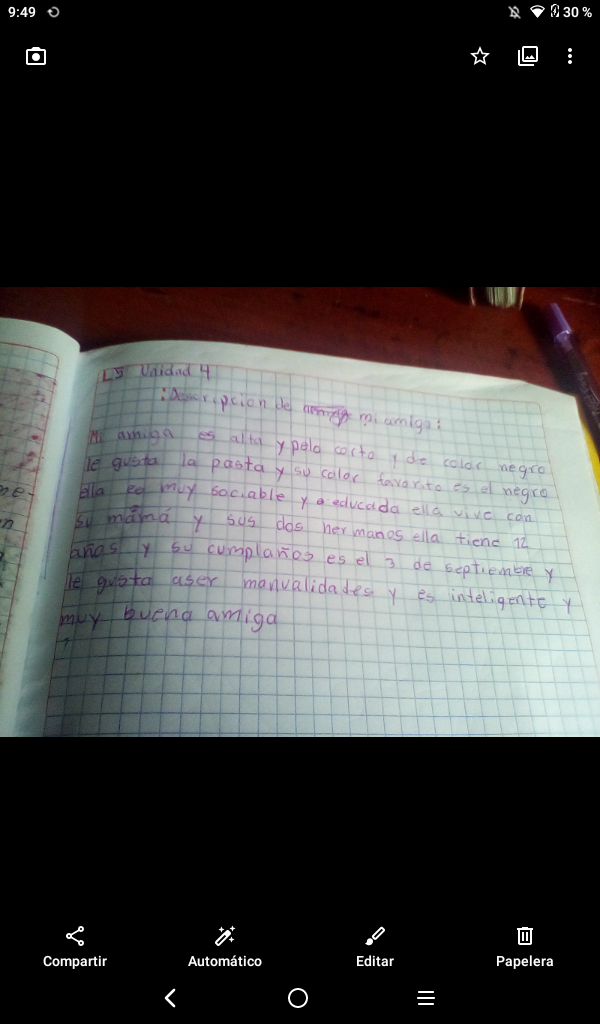 9:49
30 %
L5 Unidad 4
:Descripcion de mi amiga:
Mi amiga es alta y pelo corto y de color negro
le gusta la pasta y su color favorito es el negro
ella es muy sociable y educada ella vive con
su mamá y sus dos hermanos ella tiene 12
años y su cumplaños es el 3 de septiembre y
le gusta aser manualidades y es inteligente y
muy buena amiga
Compartir
Automático
Editar
Papelera